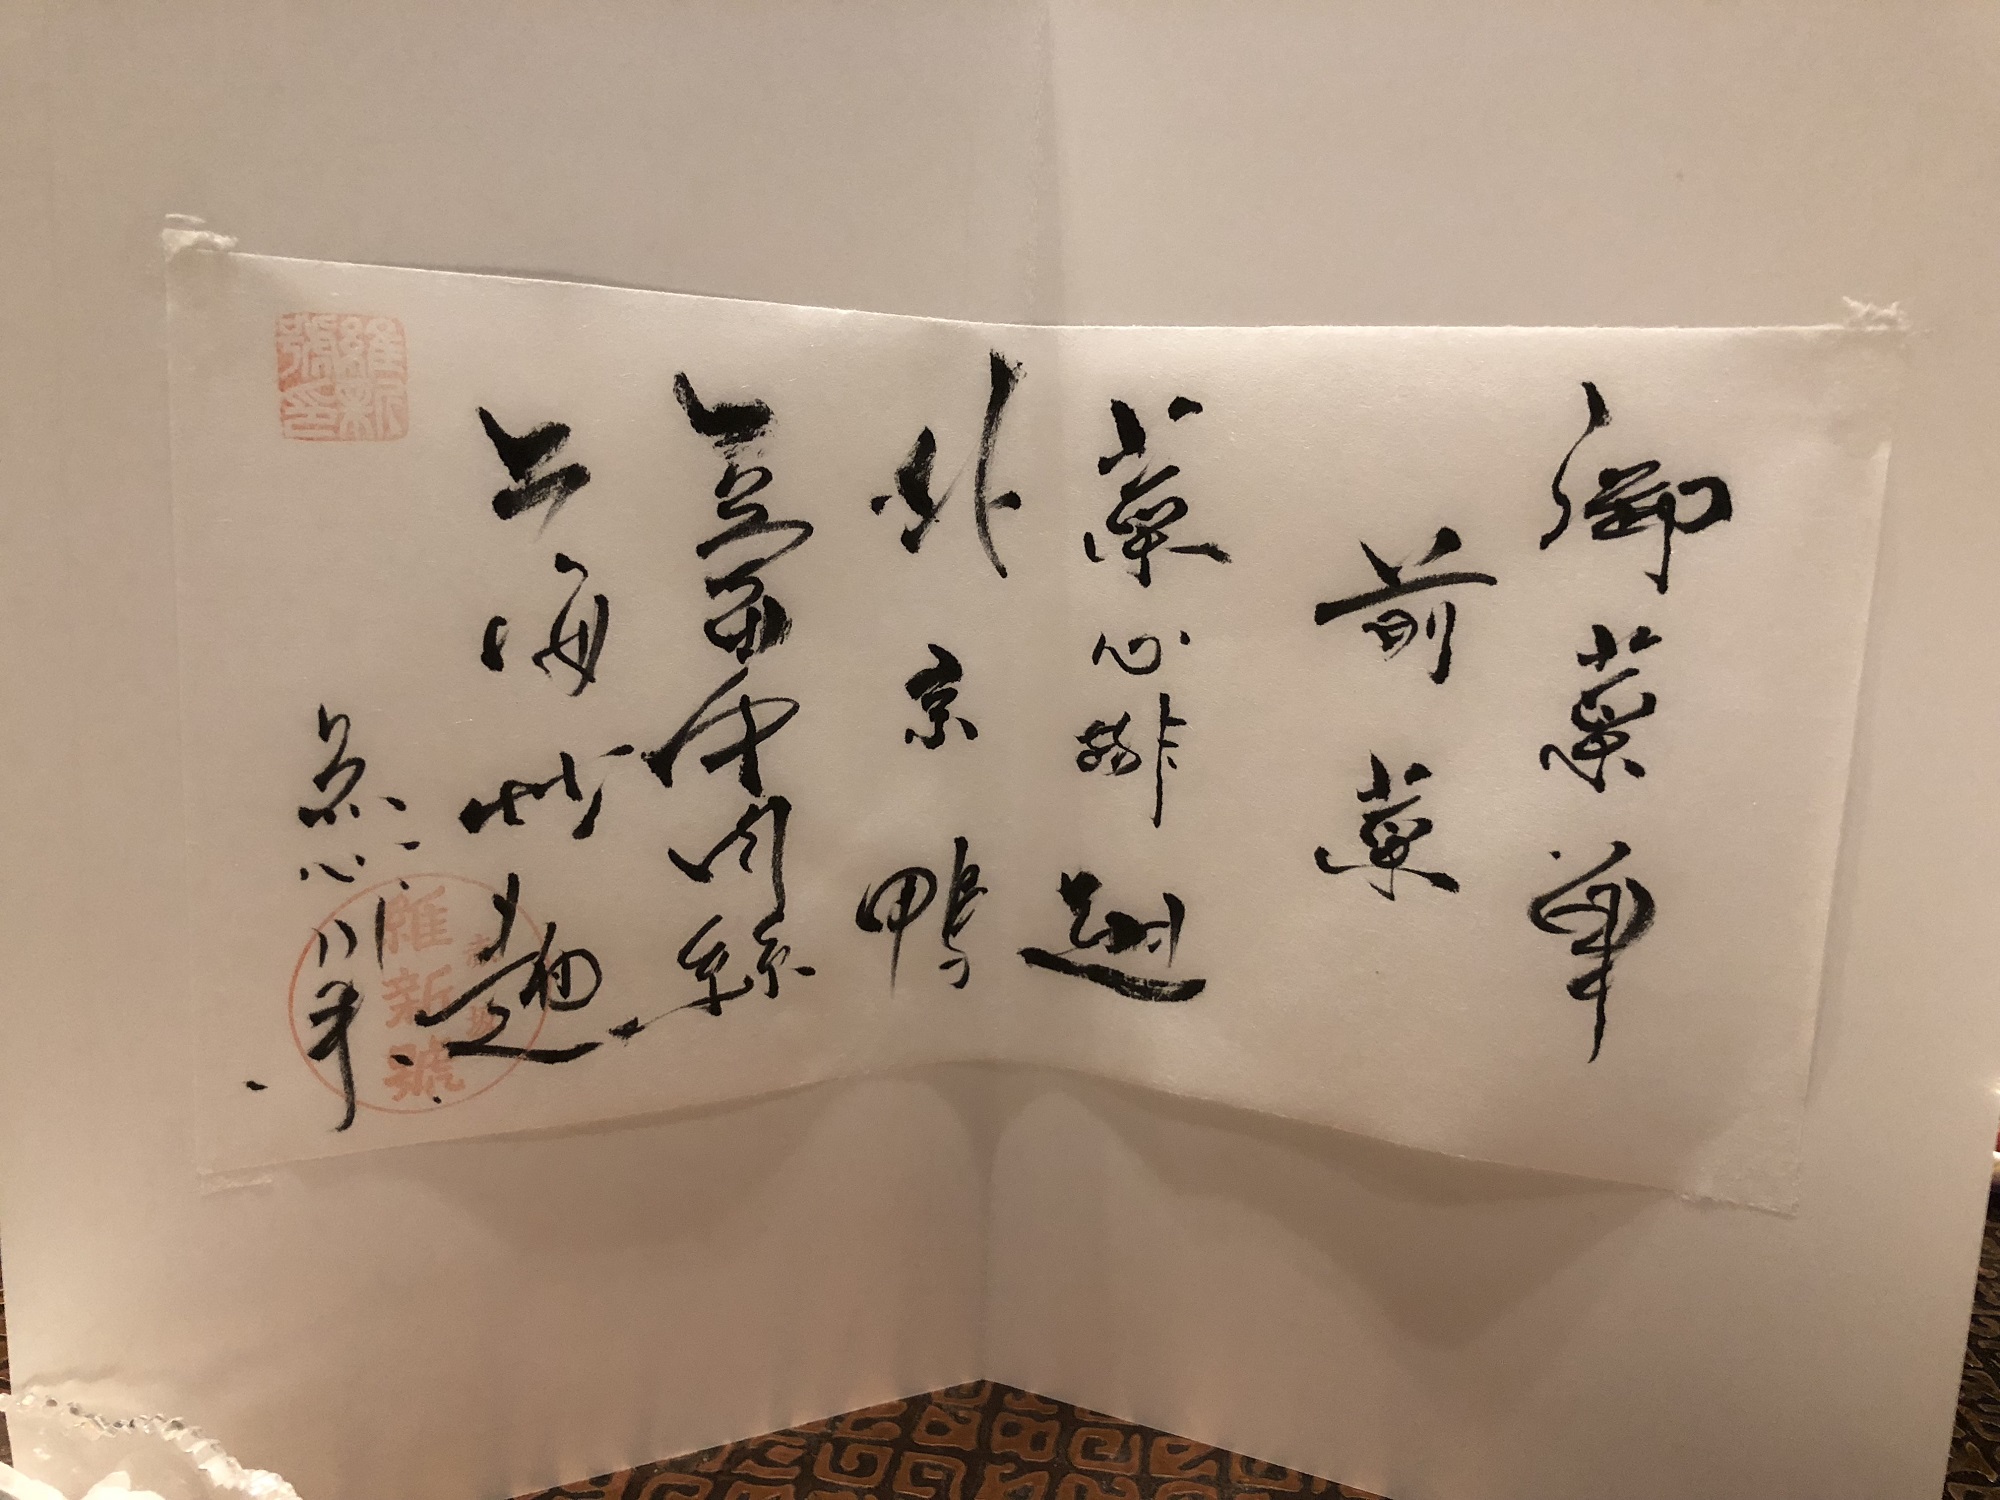 御菜單
前菜
菜心排翅
北京鴨
豆苗牛肉絲
上海炒麺
点心
維新號
維新號印